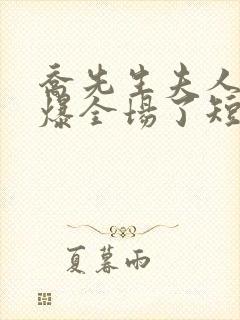 乔先生夫人
爆全场了短
夏暮雨